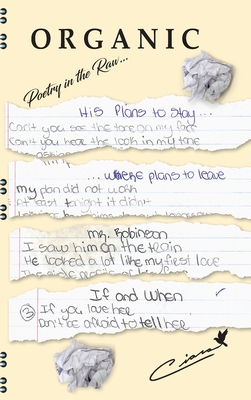 ORGANIC
Poetry in the Raw...
His Plans to Stay...
Can't you see the tone on my face
Can't you hear the look in my tone
...where plans to leave
my plan did not work
At least tonight it didn't
Mr. Robinson
I saw him on the train
He looked a lot like my first love
If and When
③ If you love her
Don't be afraid to tell her
Ciara